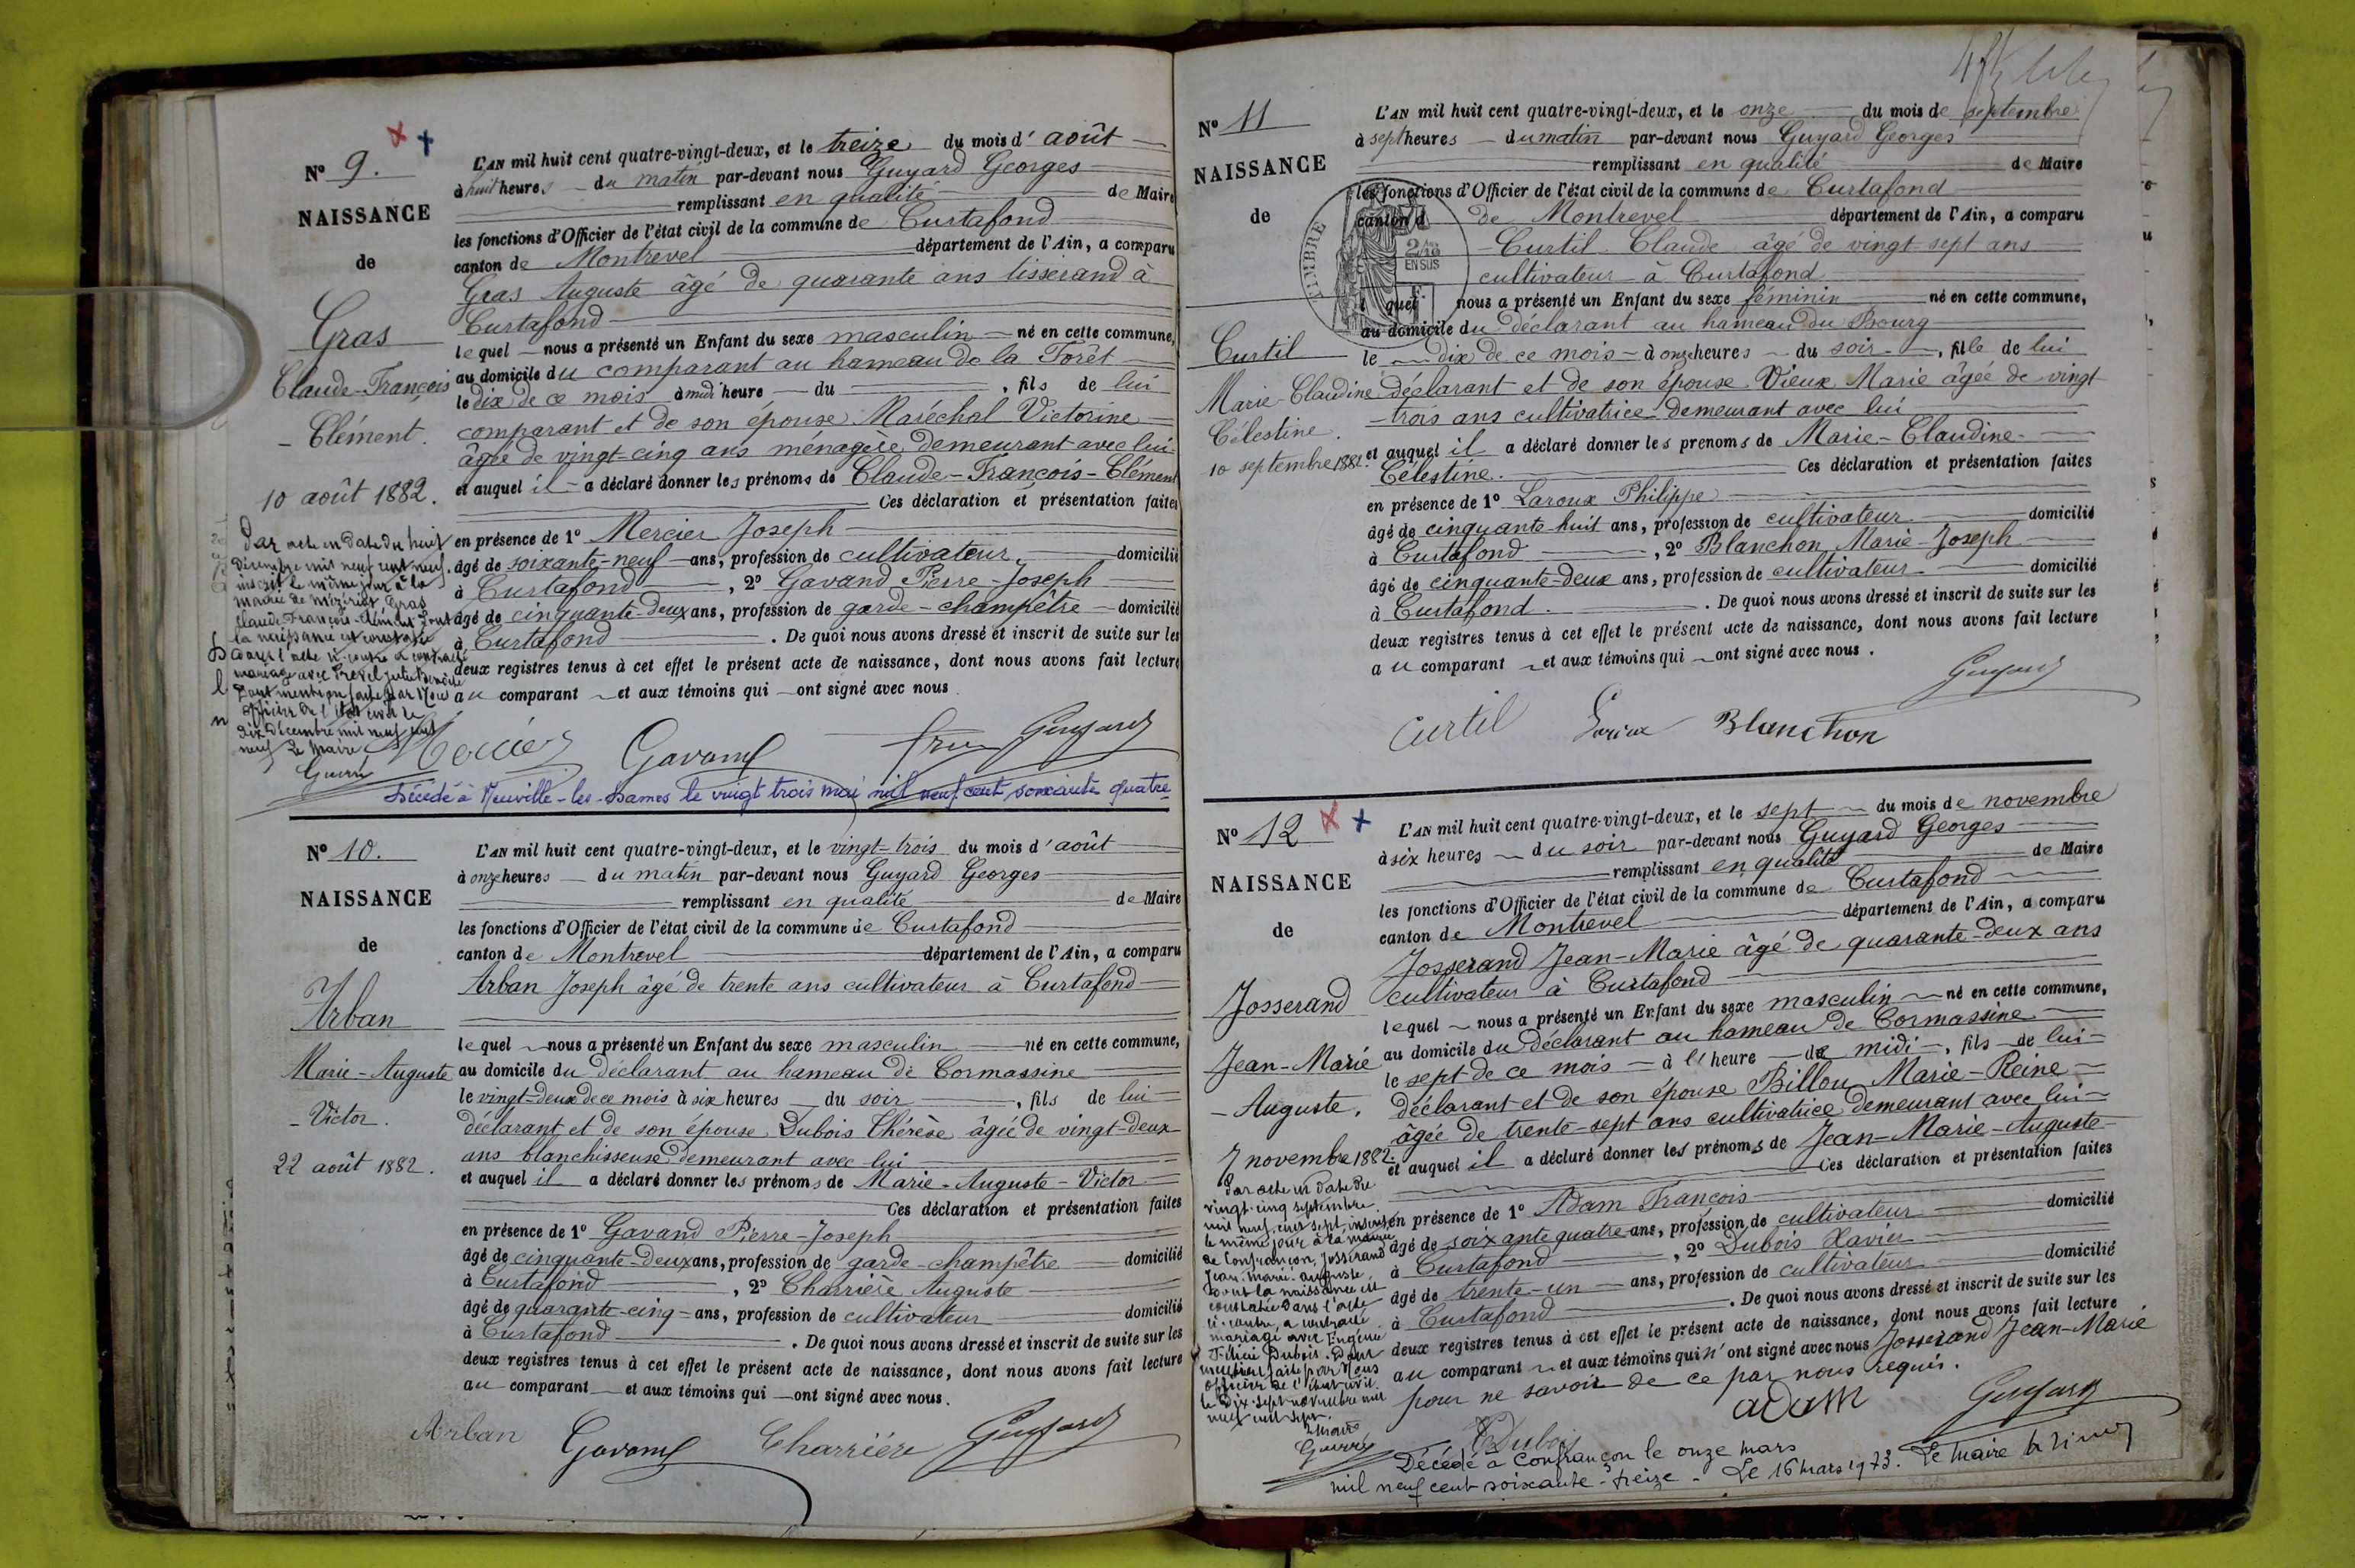 N° 9.
NAISSANCE
de
Gras
Claude-François
- Clément.
10 août 1882.
Par acte en date du huit
décembre mil neuf cent neuf
inscrit le même jour à la
mairie de Mézériat Gras
Claude François Clément dont
la naissance est constatée
dans l'acte ci-contre a contracté
mariage avec
Dont mention faite par Nous
officier de l'état civil le
dix décembre mil neuf cent
neuf Le Maire
Guerré
L'AN mil huit cent quatre-vingt-deux, et le treize du mois d'août
à huit heures du matin par-devant nous Guyard Georges
remplissant en qualité de Maire
les fonctions d'Officier de l'état civil de la commune de Curtafond
canton de Montrevel département de l'Ain, a comparu
Gras Auguste âgé de quarante ans tisserand à
Curtafond
lequel nous a présenté un Enfant du sexe masculin né en cette commune,
au domicile du comparant au hameau de la Forêt
le dix de ce mois à midi heure du , fils de lui
comparant et de son épouse Maréchal Victorine
âgée de vingt-cinq ans ménagère demeurant avec lui
et auquel il a déclaré donner les prénoms de Claude-François-Clément
Ces déclaration et présentation faites
en présence de 1° Mercier Joseph
âgé de soixante-neuf ans, profession de cultivateur domicilié
à Curtafond , 2° Gavand Pierre-Joseph
âgé de cinquante-deux ans, profession de garde-champêtre domicilié
à Curtafond . De quoi nous avons dressé et inscrit de suite sur les
deux registres tenus à cet effet le présent acte de naissance, dont nous avons fait lecture
au comparant et aux témoins qui ont signé avec nous.
Mercier Gavand Gras Guyard
Décédé à Neuville-les-Dames le vingt trois mai mil neuf cent soixante quatre
N° 10.
NAISSANCE
de
Arban
Marie-Auguste
- Victor.
22 août 1882.
L'AN mil huit cent quatre-vingt-deux, et le vingt-trois du mois d'août
à onze heures du matin par-devant nous Guyard Georges
remplissant en qualité de Maire
les fonctions d'Officier de l'état civil de la commune de Curtafond
canton de Montrevel département de l'Ain, a comparu
Arban Joseph âgé de trente ans cultivateur à Curtafond
lequel nous a présenté un Enfant du sexe masculin né en cette commune,
au domicile du déclarant au hameau de Cormassine
le vingt-deux de ce mois à six heures du soir , fils de lui
déclarant et de son épouse Dubois Thérèse âgée de vingt-deux
ans blanchisseuse demeurant avec lui
et auquel il a déclaré donner les prénoms de Marie-Auguste-Victor
Ces déclaration et présentation faites
en présence de 1° Gavand Pierre-Joseph
âgé de cinquante-deux ans, profession de garde-champêtre domicilié
à Curtafond , 2° Charrière Auguste
âgé de quarante-cinq ans, profession de cultivateur domicilié
à Curtafond . De quoi nous avons dressé et inscrit de suite sur les
deux registres tenus à cet effet le présent acte de naissance, dont nous avons fait lecture
au comparant et aux témoins qui ont signé avec nous.
Arban Gavand Charrière Guyard
N° 11
NAISSANCE
de
Curtil
Marie-Claudine
Célestine.
10 septembre 1882.
L'AN mil huit cent quatre-vingt-deux, et le onze du mois de septembre
à sept heures du matin par-devant nous Guyard Georges
remplissant en qualité de Maire
les fonctions d'Officier de l'état civil de la commune de Curtafond
canton d de Montrevel département de l'Ain, a comparu
Curtil Claude âgé de vingt sept ans
cultivateur à Curtafond
l quel nous a présenté un Enfant du sexe féminin né en cette commune,
au domicile du déclarant au hameau du Bourg
le dix de ce mois à onze heures du soir , fille de lui
déclarant et de son épouse Vieux Marie âgée de vingt
-trois ans cultivatrice demeurant avec lui
et auquel il a déclaré donner les prenoms de Marie-Claudine-
Célestine. Ces déclaration et présentation faites
en présence de 1° Laroux Philippe
âgé de cinquante-huit ans, profession de cultivateur domicilié
à Curtafond , 2° Blanchon Marie-Joseph
âgé de cinquante-deux ans, profession de cultivateur domicilié
à Curtafond. . De quoi nous avons dressé et inscrit de suite sur les
deux registres tenus à cet effet le présent acte de naissance, dont nous avons fait lecture
au comparant et aux témoins qui ont signé avec nous.
Guyard
Curtil Laroux Blanchon
TIMBRE
2/10
EN SUS
N° 12
NAISSANCE
de
Josserand
Jean-Marie
- Auguste.
7 novembre 1882.
Par acte en date du
vingt-cinq septembre
mil neuf cent sept, inscrit
le même jour à la mairie
de Confrançon, Josserand
Jean-Marie-Auguste
dont la naissance est
constatée dans l'acte
ci-contre, a contracté
mariage avec Eugénie
Félicie Dubois. Dont
mention faite par Nous
officier de l'état civil
le dix-sept novembre mil
neuf cent sept.
Le Maire
Guerré
L'AN mil huit cent quatre-vingt-deux, et le sept du mois de novembre
à six heures du soir par-devant nous Guyard Georges
remplissant en qualité de Maire
les fonctions d'Officier de l'état civil de la commune de Curtafond
canton de Montrevel département de l'Ain, a comparu
Josserand Jean-Marie âgé de quarante-deux ans
cultivateur à Curtafond
lequel nous a présenté un Enfant du sexe masculin né en cette commune,
au domicile du déclarant au hameau de Cormassine
le sept de ce mois à l'heure de midi , fils de lui
déclarant et de son épouse Billon Marie-Reine
âgée de trente-sept ans cultivatrice demeurant avec lui
et auquel il a déclaré donner les prénoms de Jean-Marie-Auguste
Ces déclaration et présentation faites
en présence de 1° Adam François
âgé de soixante quatre ans, profession de cultivateur domicilié
à Curtafond , 2° Dubois Xavier
âgé de trente-un ans, profession de cultivateur domicilié
à Curtafond . De quoi nous avons dressé et inscrit de suite sur les
deux registres tenus à cet effet le présent acte de naissance, dont nous avons fait lecture
au comparant et aux témoins qui n'ont signé avec nous Josserand Jean-Marie
pour ne savoir de ce par nous requis.
Dubois adam Guyard
Décédé à Confrançon le onze mars
mil neuf cent soixante-treize - Le 16 mars 1973. Le Maire